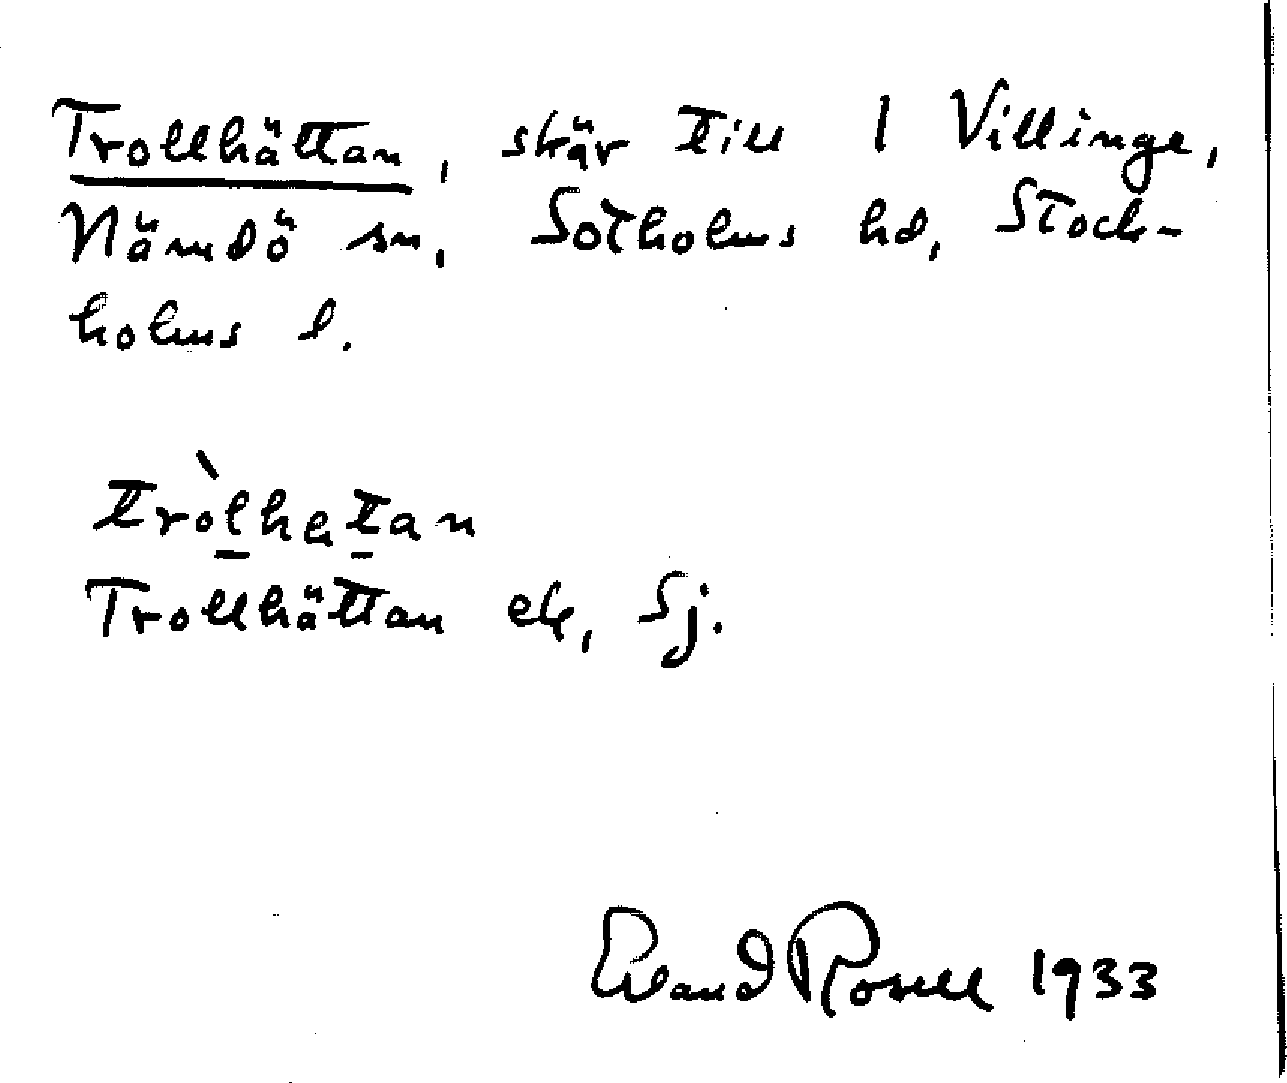 Trollhättan, skär till 1 Villinge,
Nämdö sn, Sotholms hd, Stock-
holms l.
tròlhetan
Trollhättan ek, Sj.
Evand Rosell 1933